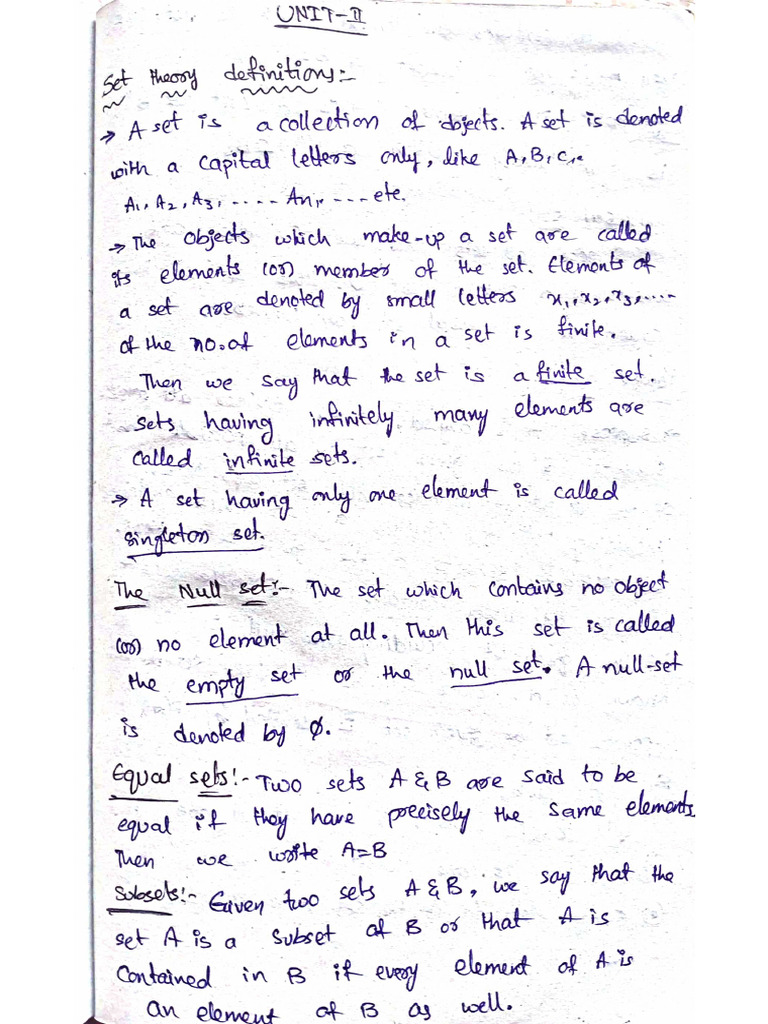 UNIT-II
Set theory definitions:-
→ A set is a collection of objects. A set is denoted
with a capital letters only, like A, B, C,..
A₁, A₂, A₃, .... An,.. --- etc.
→ The objects which make-up a set are called
its elements (or) member of the set. Elements of
a set are denoted by small letters x₁, x₂, x₃, ....
of the no.of elements in a set is finite.
Then we say that the set is a finite set.
sets having infinitely many elements are
called infinite sets.
→ A set having only one element is called
singleton set.
The Null set:- The set which contains no object
(or) no element at all. Then this set is called
the empty set or the null set. A null-set
is denoted by ∅.
Equal sets:- Two sets A & B are said to be
equal if they have precisely the same elements.
Then we write A=B
Subsets:- Given two sets A & B, we say that the
set A is a subset of B or that A is
contained in B if every element of A is
an element of B as well.